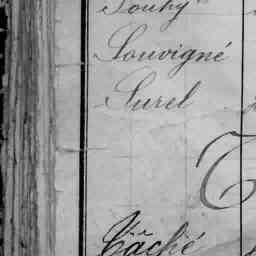 Souhy
Louvigné
Surel
T
Tâché